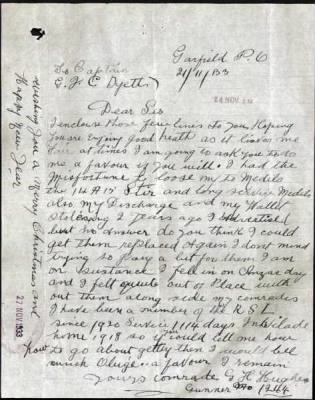 Garfield P.O
21/11/33
24 NOV.
To Captain
G. F. C Dyett
Dear Sir
I enclose those few lines to you Hoping
You are enjoying good heath as it leaves me
fair at times I am going to ask you to do
me a favour if you will. I had the
Misfortune to loose my to Medels
the 1415 Star and long service Medels
also my Discharge and my Wallet
Stolen 2 years ago I advertised
but no Answer do you think I could
get them replaced Again I dont mind
trying to pay a bit for them I am
on Sustance I fell in on Anzac day
and I felt quite out of Place with
out them along side my comrades
I have been a member of the R S L
since 1920 Service 1114 days Invilade
home 1918 so if could tell me hour
how to go about getten them I would be
much Oblige a favour I remain
Yours comrade G. H. Hughes
Gunner No 1244
Wishing you a Merry Christmas and
Happy New Year
27 NOV 1933